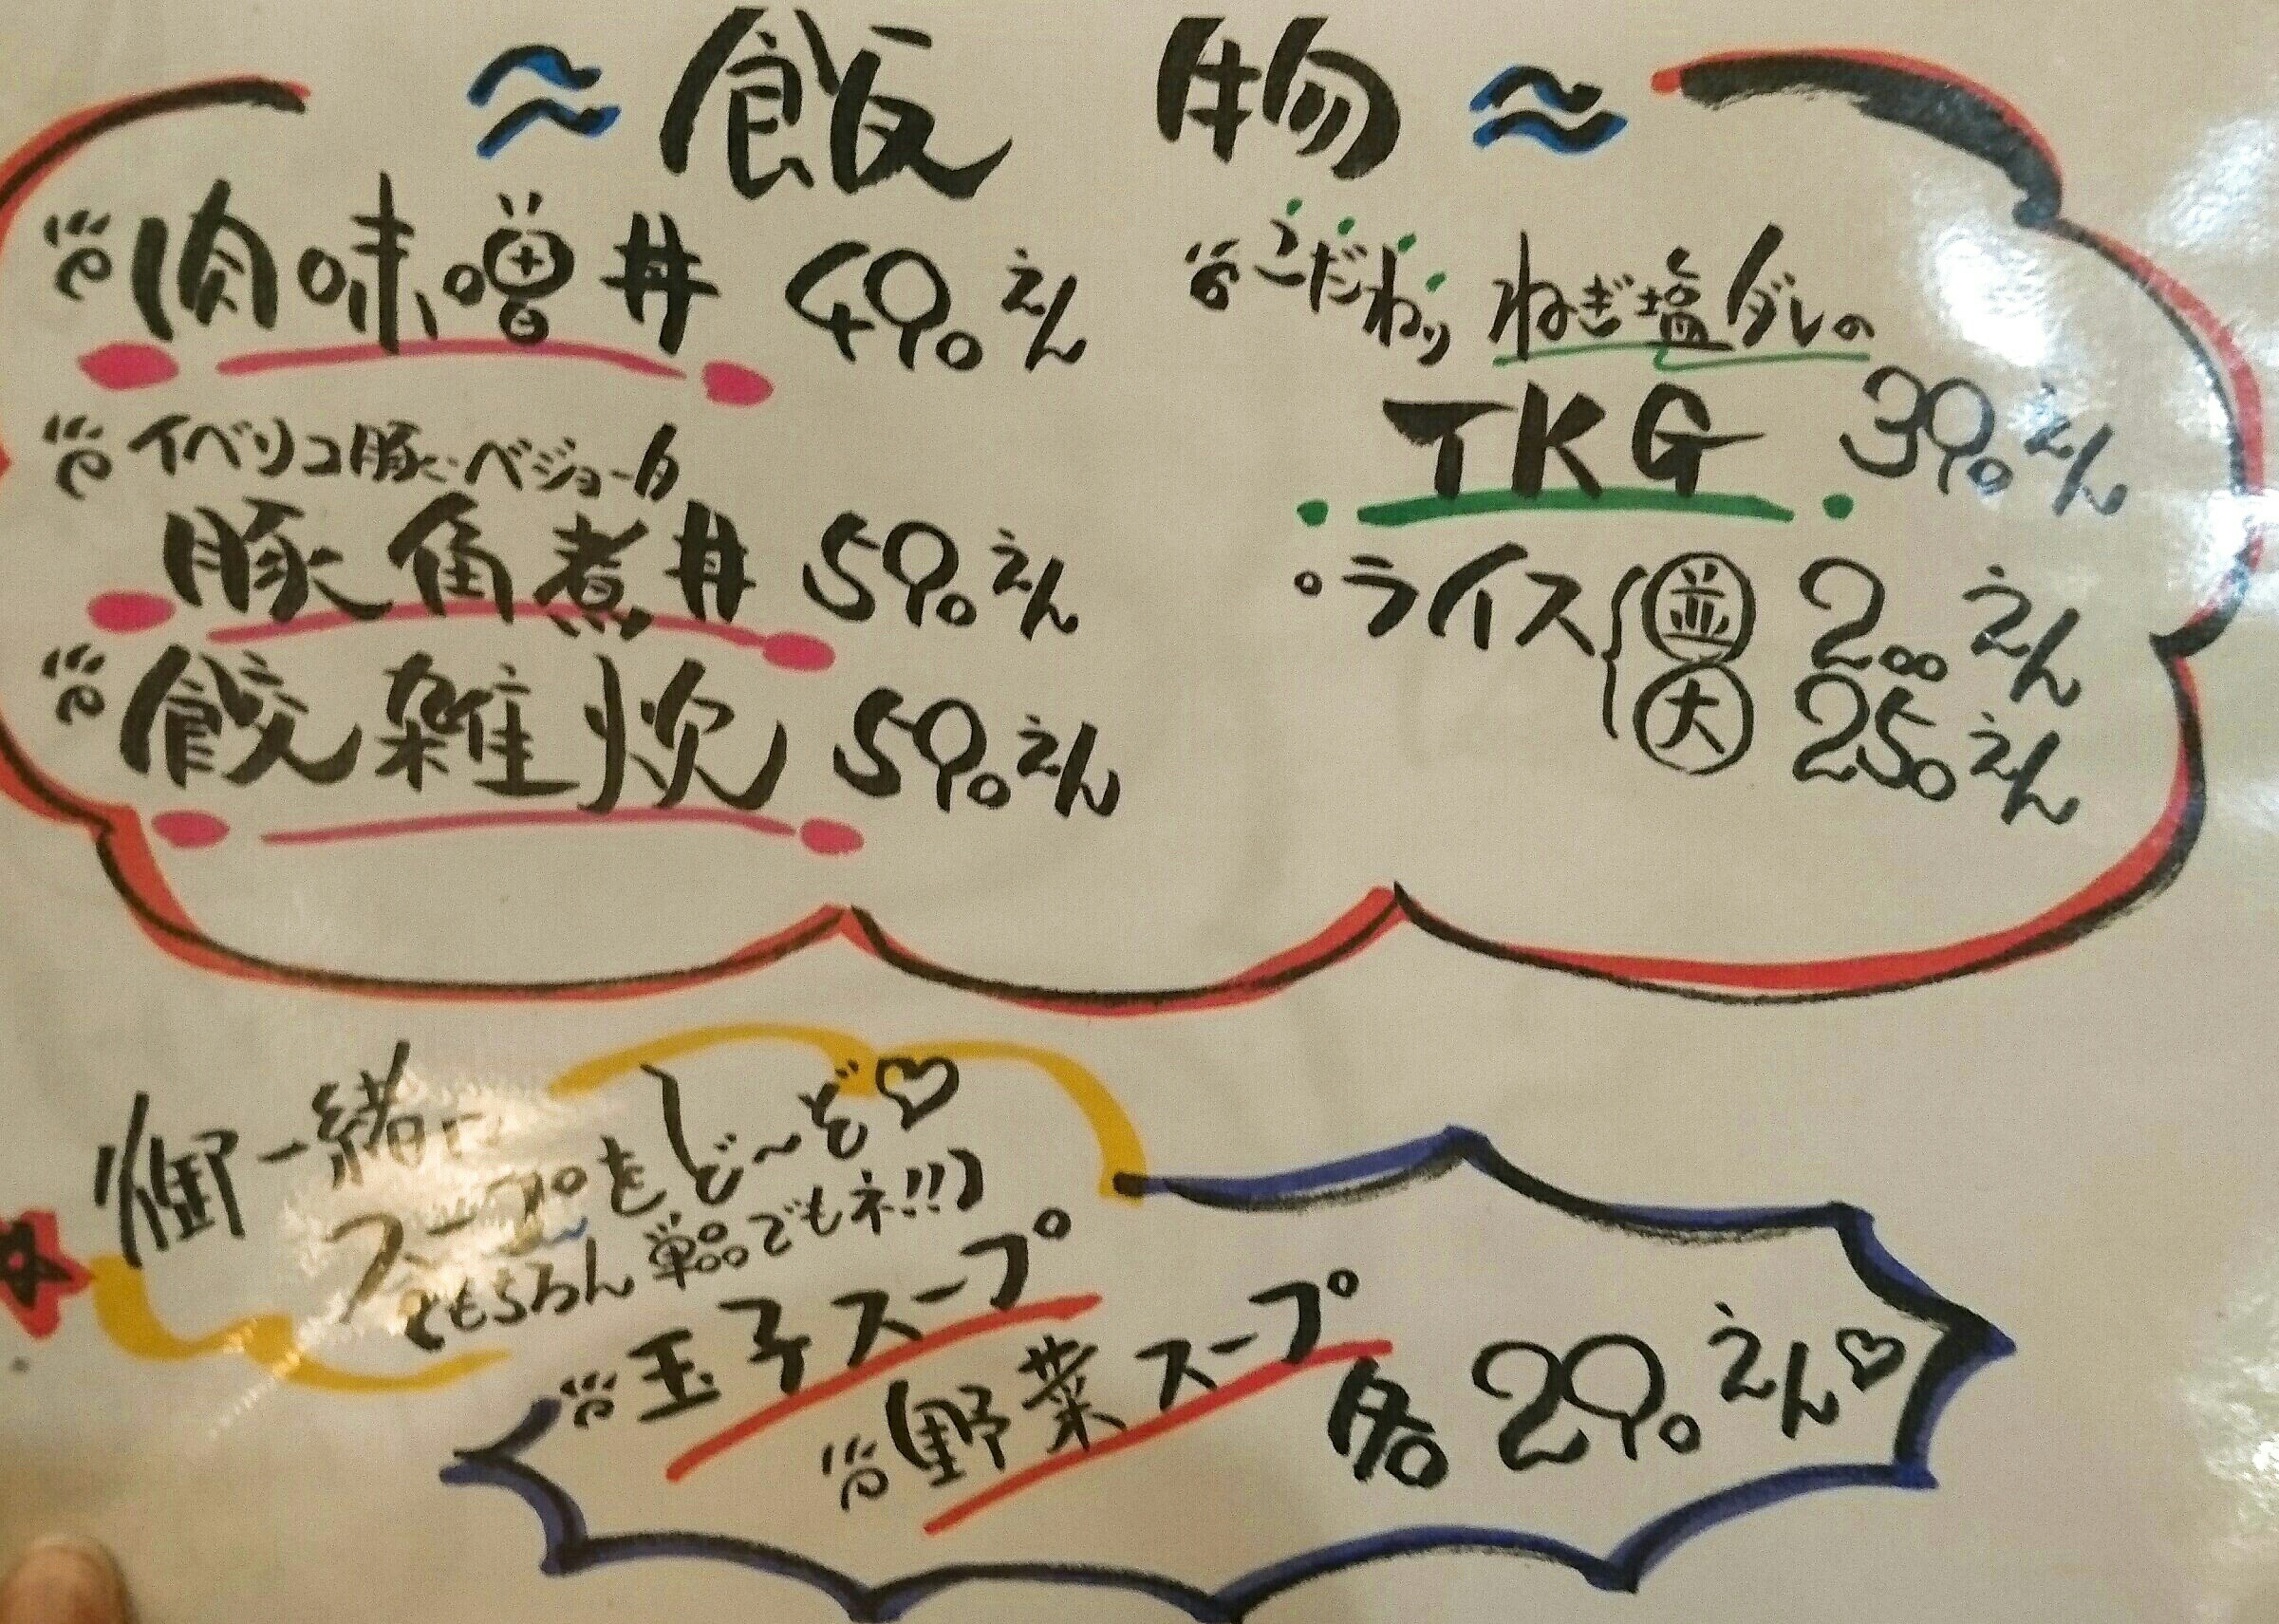 ≈飯 物≈
肉味噌丼 490えん
イベリコ豚・ベジョータ
豚角煮丼 590えん
餃雑炊 590えん
こだわり ねぎ塩ダレの
TKG 390えん
・ライス 並 200えん
大 250えん
御一緒に
スープをど〜ぞ♡
(もちろん単品でもネ!!)
玉子スープ
野菜スープ 各290えん♡